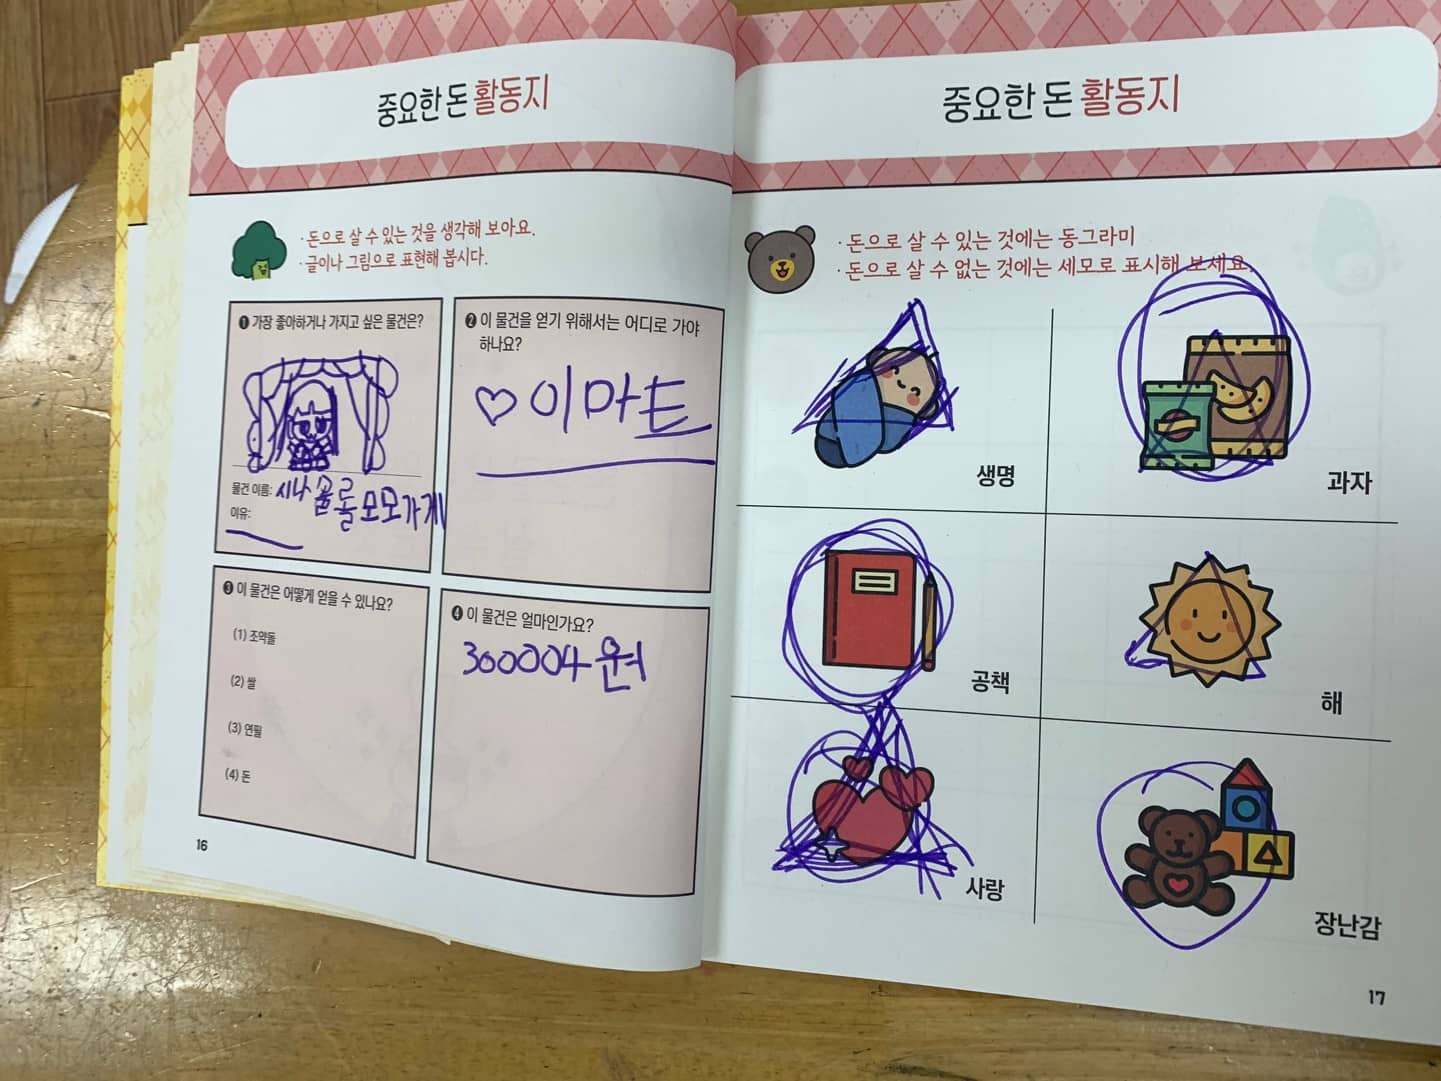 중요한 돈 활동지
· 돈으로 살 수 있는 것을 생각해 보아요.
· 글이나 그림으로 표현해 봅시다.
❶ 가장 좋아하거나 가지고 싶은 물건은?
물건 이름: 시나 롤 모모가게
이유:
❷ 이 물건을 얻기 위해서는 어디로 가야
하나요?
♡이마트
❸ 이 물건은 어떻게 얻을 수 있나요?
(1) 조약돌
(2) 쌀
(3) 연필
(4) 돈
❹ 이 물건은 얼마인가요?
300004원
16
중요한 돈 활동지
· 돈으로 살 수 있는 것에는 동그라미
· 돈으로 살 수 없는 것에는 세모로 표시해 보세요.
생명
과자
공책
해
사랑
장난감
17